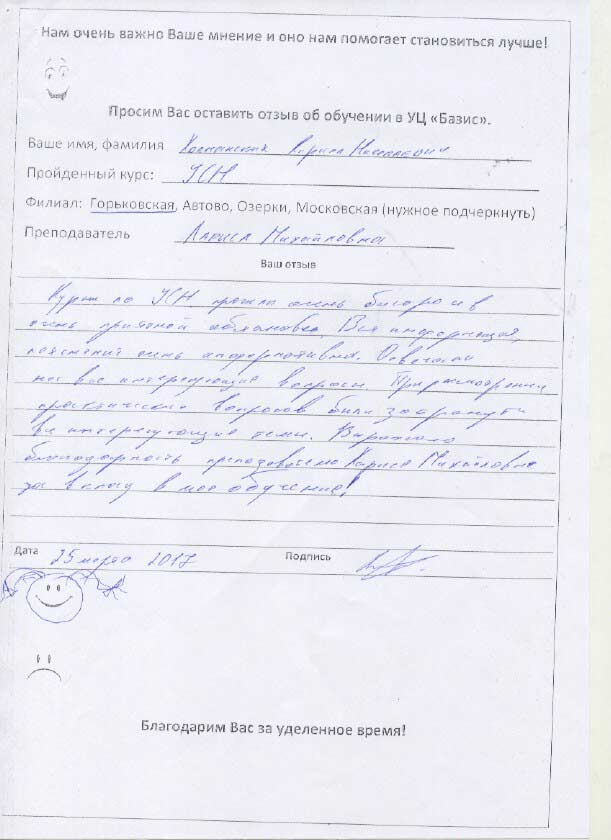 Нам очень важно Ваше мнение и оно нам помогает становиться лучше!
Просим Вас оставить отзыв об обучении в УЦ «Базис».
Ваше имя, фамилия Лариса Николаевич
Пройденный курс: УСН
Филиал: Горьковская, Автово, Озерки, Московская (нужное подчеркнуть)
Преподаватель Лариса Михайловна
Ваш отзыв
Курсы по УСН прошли очень быстро и в
очень приятной обстановке. Вся информация,
пояснения очень информативны. Освечали
нас все интересующие вопросы. При рассмотрении
практических вопросов были затронуты
все интересующие темы. Выражаю
благодарность преподавателю Ларисе Михайловне
за вклад в мое обучение!
Дата 25 марта 2017 Подпись
Благодарим Вас за уделенное время!